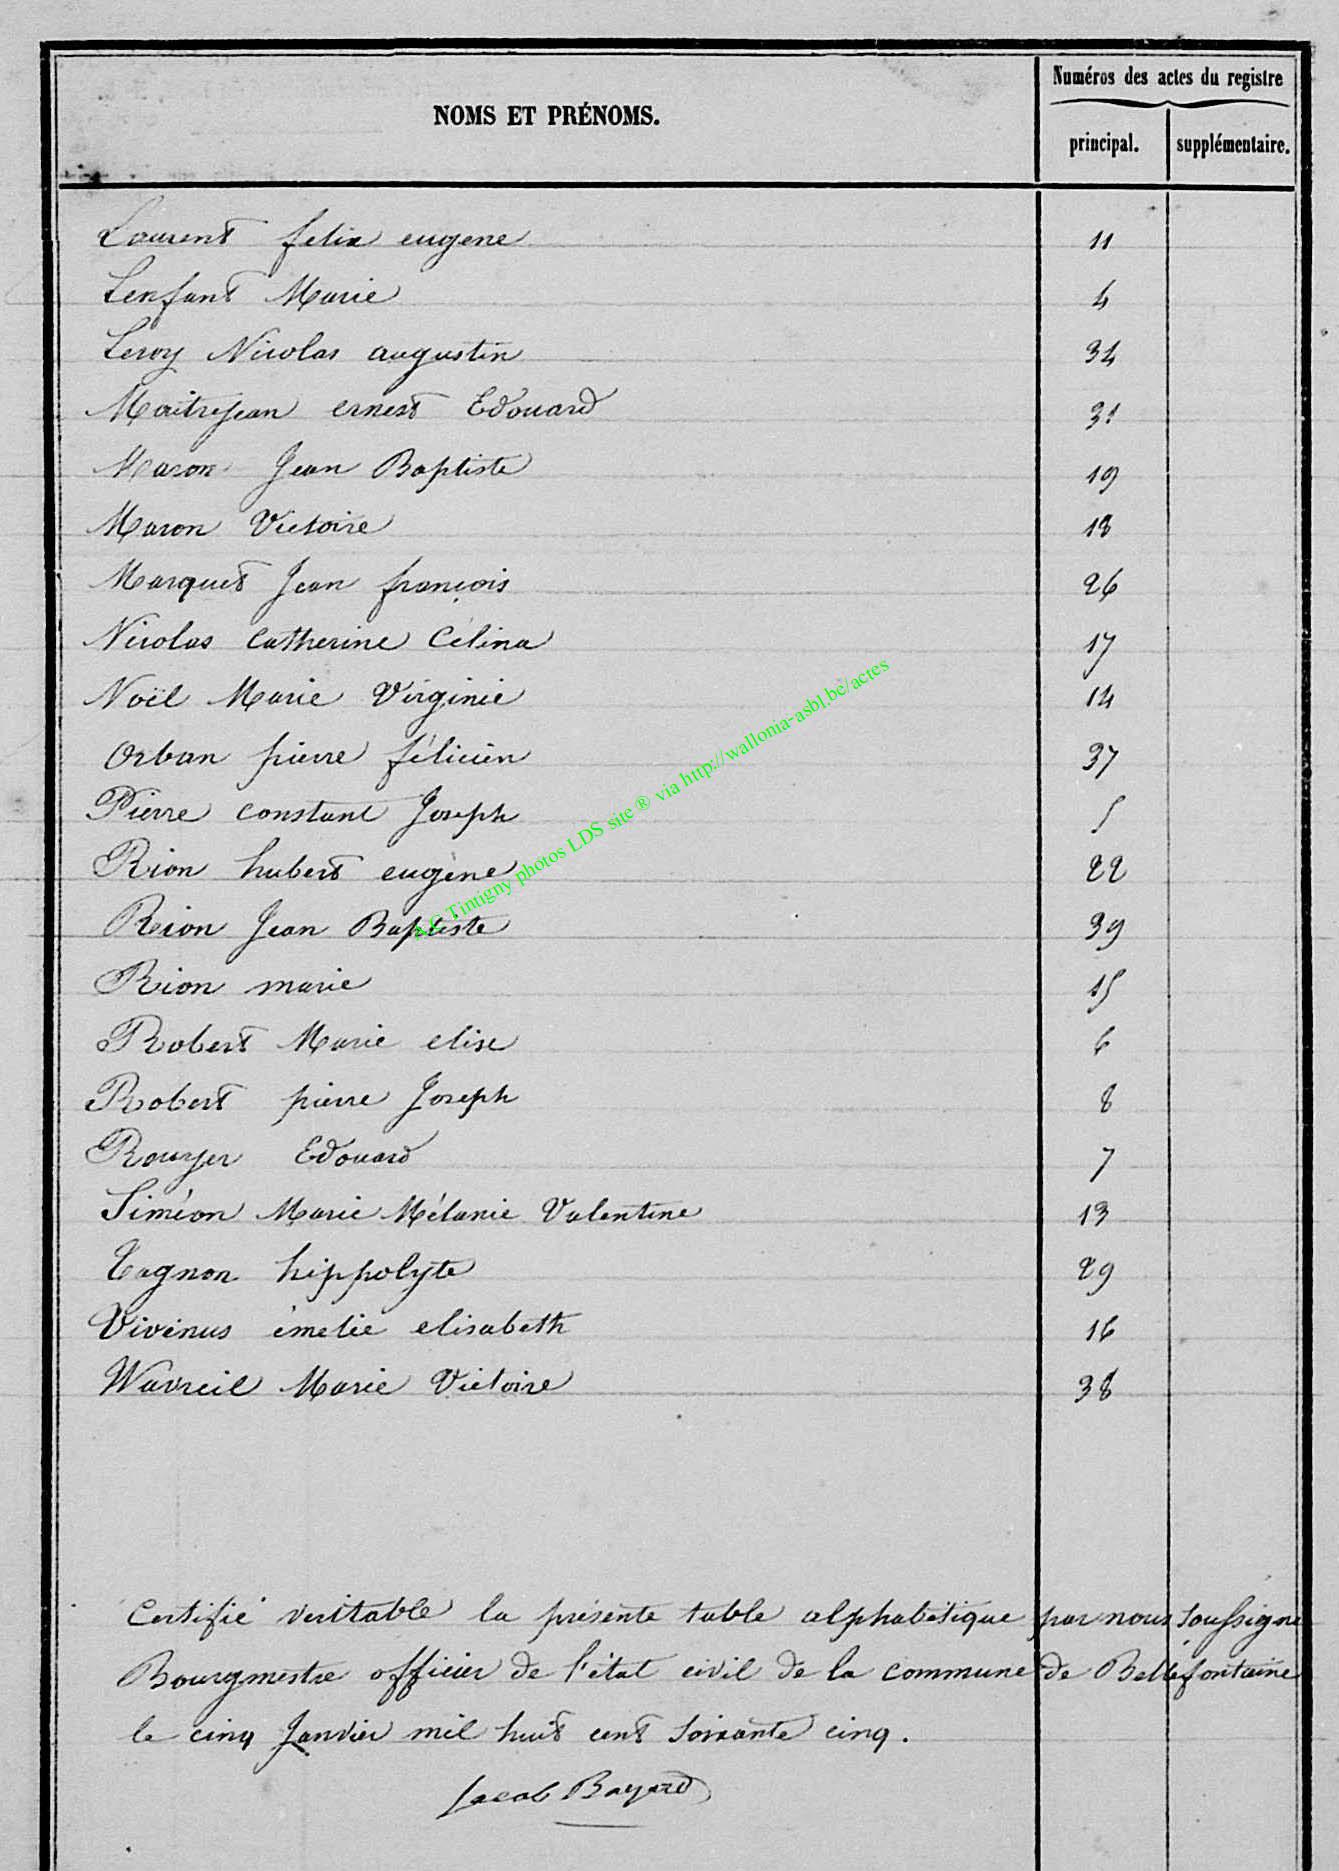 Numéros des actes du registre
NOMS ET PRÉNOMS.
principal. supplémentaire.
Laurent felix eugene 11
Lenfant Marie 4
Leroy Nicolas augustin 34
Maitrejean ernest Edouard 31
Maron Jean Baptiste 19
Maron Victoire 18
Marquet Jean françois 26
Nicolas Catherine Célina 17
Noël Marie Virginie 14
Orban pierre félicien 37
Pierre constant Joseph 5
Rion hubert eugène 22
Reion Jean Baptiste 39
Rion marie 15
Robert Marie elise 6
Robert pierre Joseph 8
Rouyer Edouard 7
Siméon Marie Mélanie Valentine 13
Tagnon hippolyte 29
Vivinus émelie elisabeth 16
Wavreil Marie Victoire 38
A.C Tintigny photos LDS site ® via http://wallonia-asbl.be/actes
Certifié veritable la présente table alphabétique par nous soussigné
Bourgmestre officier de l'état civil de la commune de Bellefontaine
le cinq Janvier mil huit cent soixante cinq.
Jacob Bayard